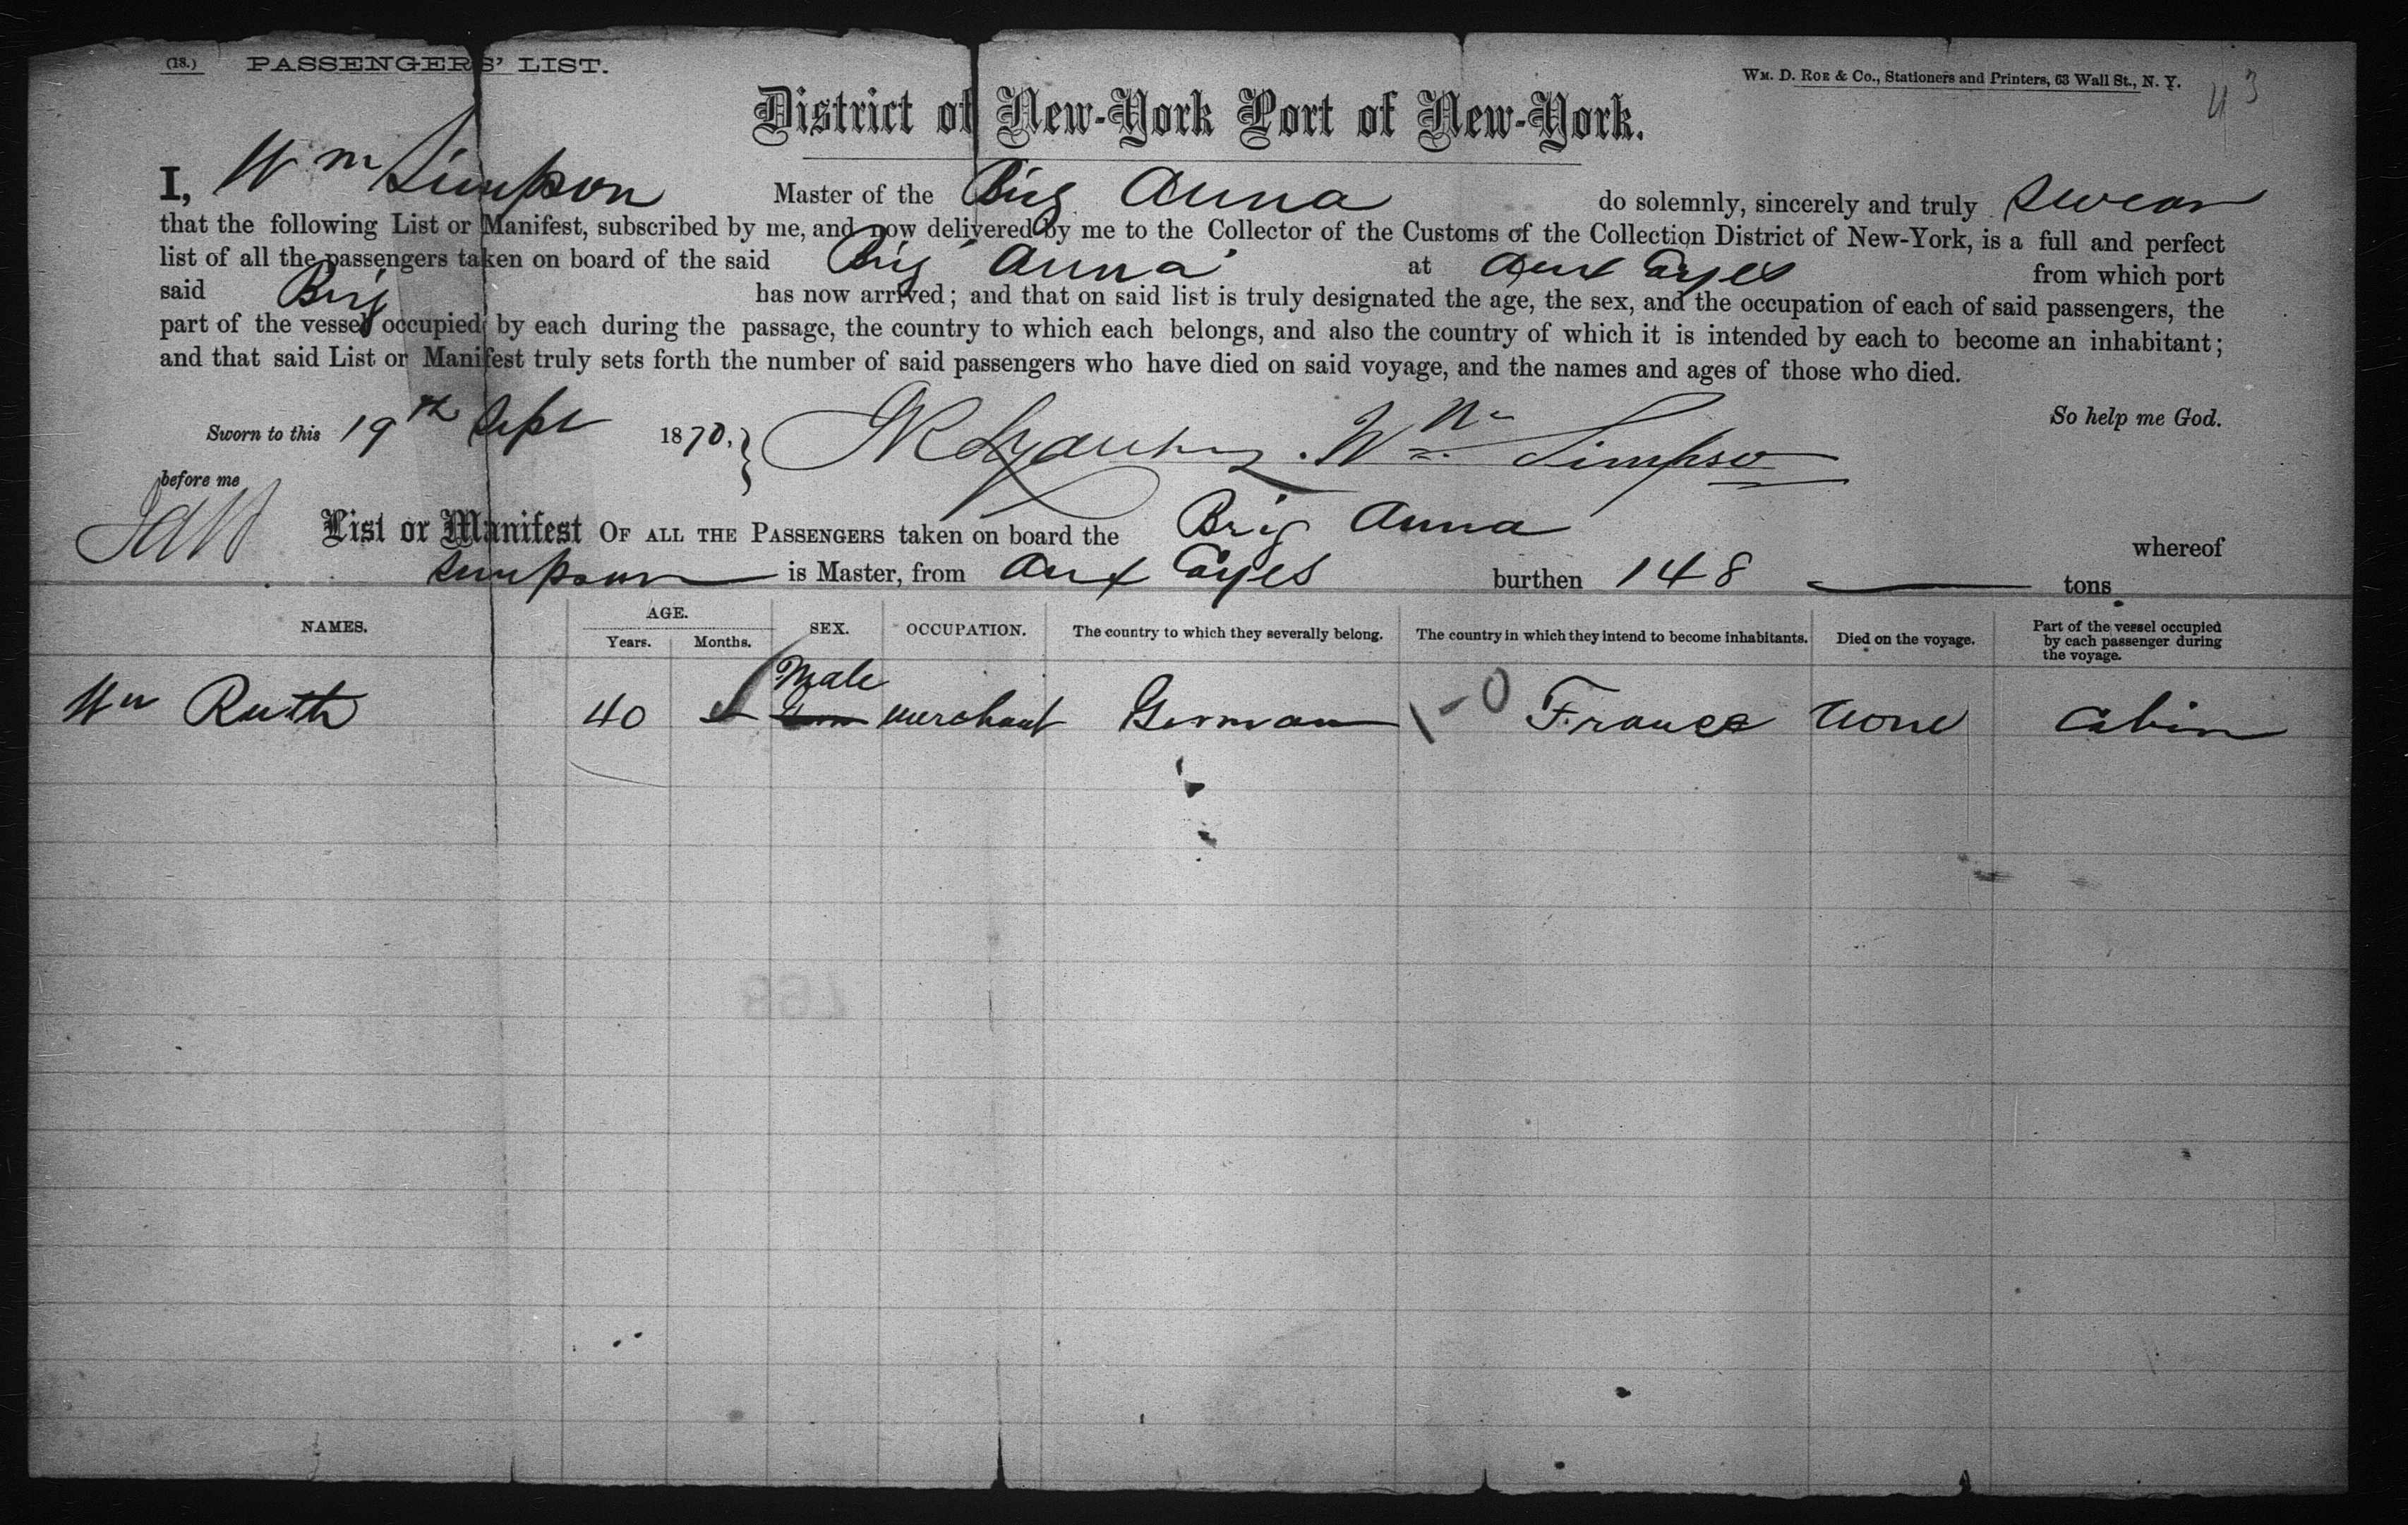 (18.) PASSENGERS' LIST.
WM. D. ROE & Co., Stationers and Printers, 63 Wall St., N. Y.
43
District of New-York Port of New-York.
I, Wm Simpson Master of the Brig Anna do solemnly, sincerely and truly swear
that the following List or Manifest, subscribed by me, and now delivered by me to the Collector of the Customs of the Collection District of New-York, is a full and perfect
list of all the passengers taken on board of the said Brig Anna at Aux Cayes from which port
said Brig has now arrived; and that on said list is truly designated the age, the sex, and the occupation of each of said passengers, the
part of the vessel occupied by each during the passage, the country to which each belongs, and also the country of which it is intended by each to become an inhabitant;
and that said List or Manifest truly sets forth the number of said passengers who have died on said voyage, and the names and ages of those who died.
So help me God.
Sworn to this 19th Sept 1870. } Wm Simpson
before me
List or Manifest OF ALL THE PASSENGERS taken on board the Brig Anna whereof
Simpson is Master, from Aux Cayes burthen 148 tons
NAMES. AGE. Years. Months. SEX. OCCUPATION. The country to which they severally belong. The country in which they intend to become inhabitants. Died on the voyage. Part of the vessel occupied by each passenger during the voyage.
Wm Ruth 40 Male merchant German 1-0 France None Cabin